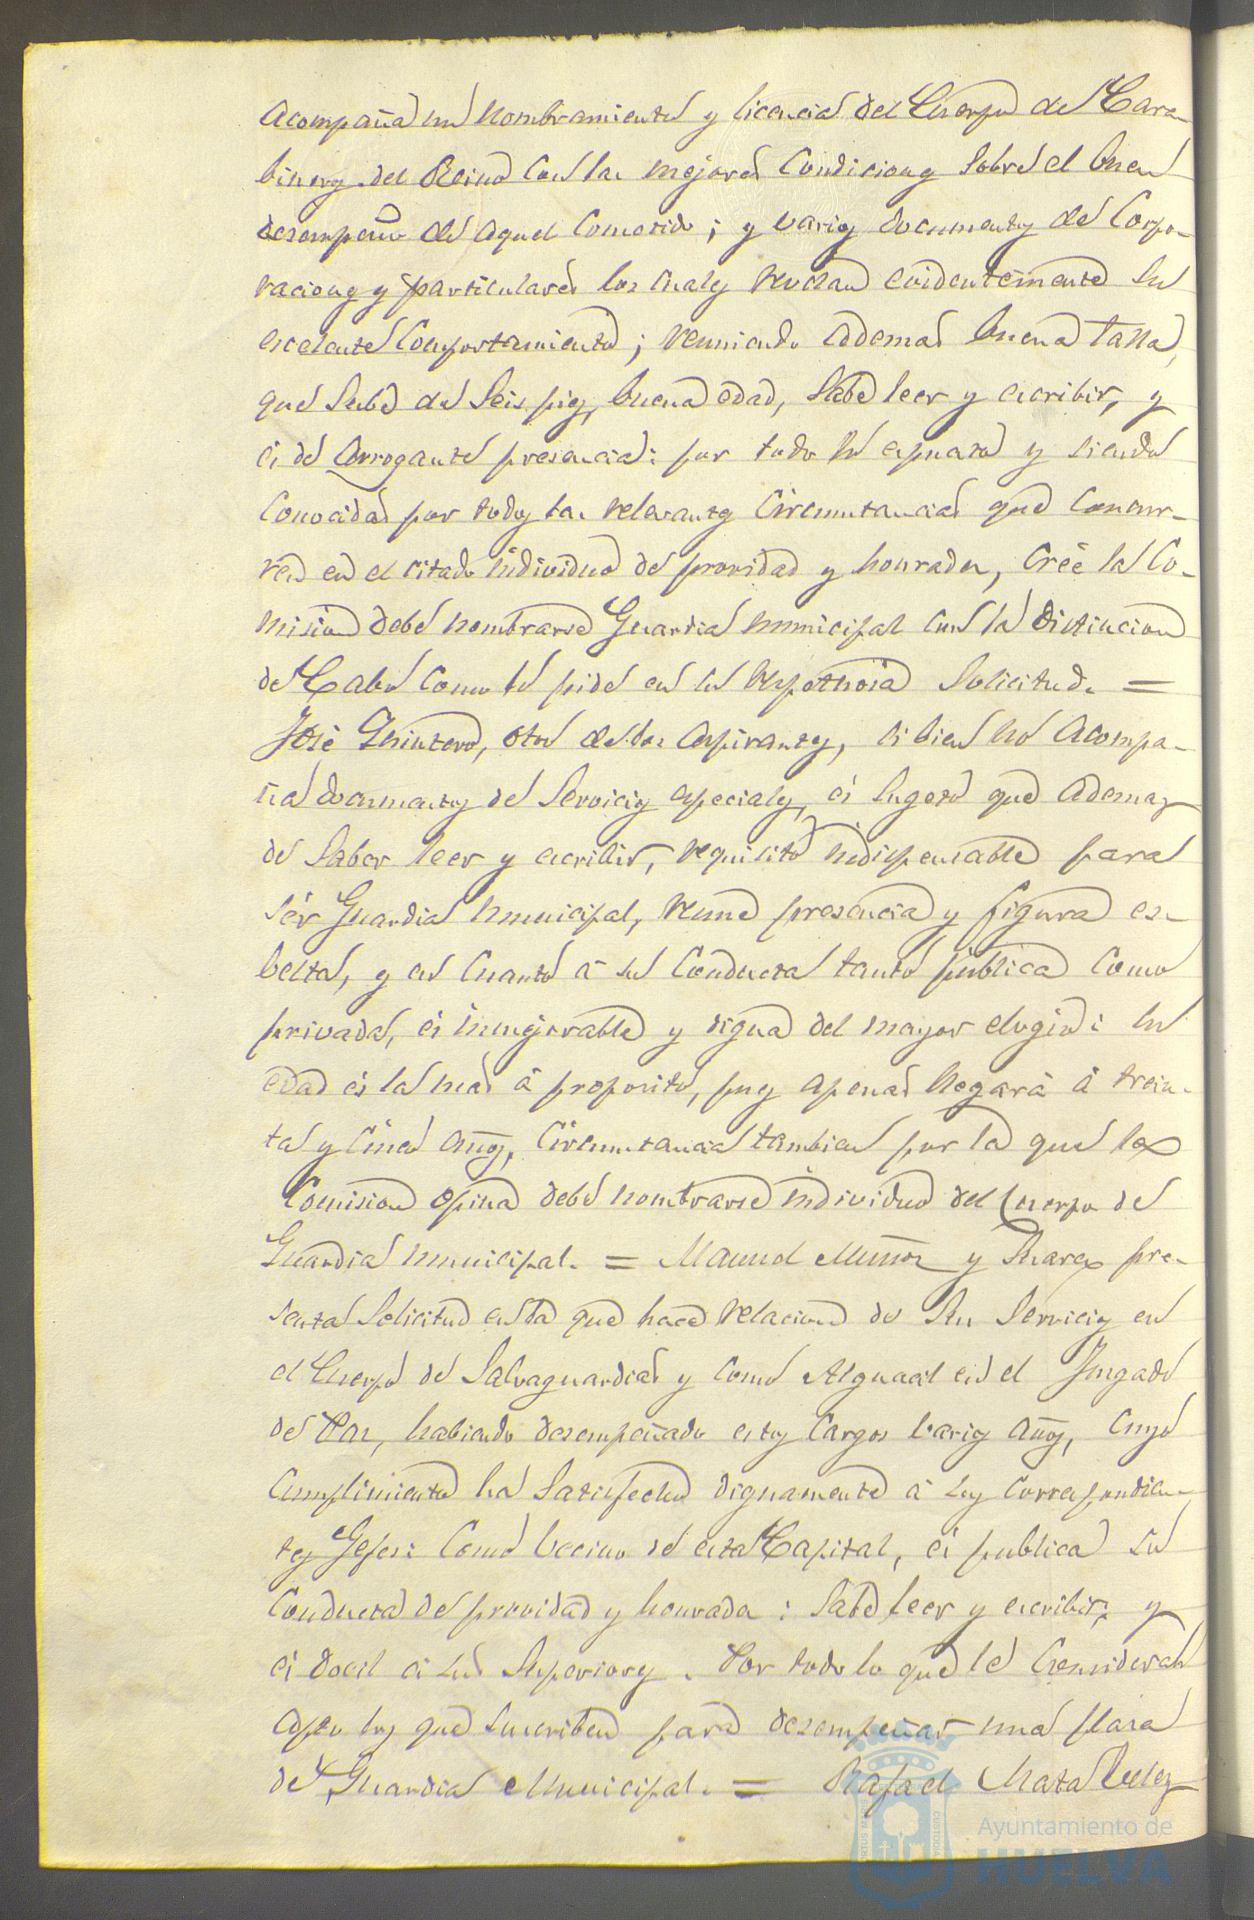 Acompaña un nombramiento y licencia del Cuerpo de Cara-
bineros del Reino con las mejores condiciones sobre el buen
desempeño de aquel cometido; y varios documentos de Corpo-
raciones y particulares los cuales revelan evidentemente su
escelente comportamiento; reuniendo ademas buena talla,
que sube de seis pies, buena edad, sabe leer y escribir, y
és de arrogante presencia: por todo lo espuesto y siendo
conocidas por todos las relevantes circunstancias que concur-
ren en el citado individuo de providad y honradez, créé la Co-
mision debe nombrarse Guardia municipal con la distincion
de Cabo como lo pide en su respetuosa solicitud. =
José Quintero, otro de los aspirantes, si bien no acompa-
ña documentos de servicios especiales, és sugeto que ademas
de saber leer y escribir, requisito indispensable para
sér Guardia municipal, reune presencia y figura es-
belta, y en cuanto á su conducta tanto pública como
privada, és inmejorable y digna del mayor elogio: su
edad és la mas á proposito, pues apenas llegará á trein-
ta y cinco años, circunstancia tambien por la que la
Comision opina debe nombrarse individuo del Cuerpo de
Guardia municipal. = Manuel Muñoz y Suarez pre-
senta solicitud en la que hace relacion de sus servicios en
el Cuerpo de Salvaguardias y como Alguacil en el Juzgado
de Paz, habiendo desempeñado estos cargos varios años, cuyo
cumplimiento ha satisfecho dignamente á sus correspondien-
tes Gefes: como vecino de esta Capital, és publica su
conducta de providad y honradez: sabe leer y escribir, y
és docil á sus superiores. Por todo lo que le consideran
apto los que suscriben para desempeñar una plaza
de Guardia Municipal. = Rafael Mata Velez
Ayuntamiento de
HUELVA